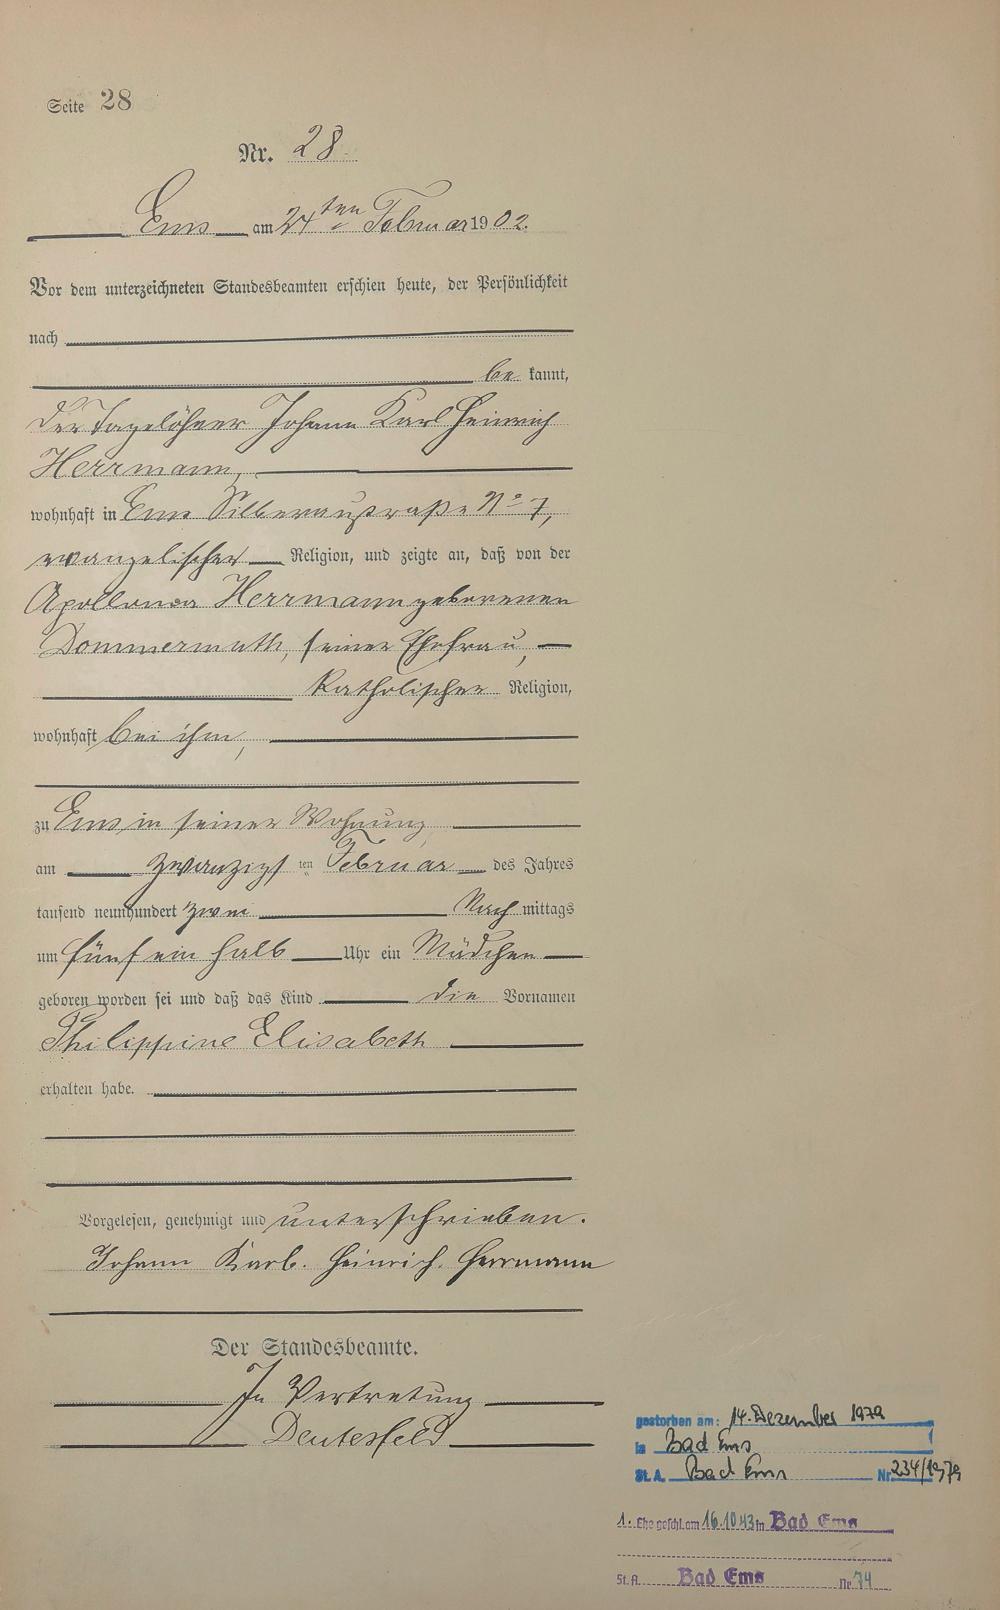 Seite 28
Nr. 28.
Ems am 24ten Februar 1902.
Vor dem unterzeichneten Standesbeamten erschien heute, der Persönlichkeit
nach
be kannt,
der Tagelöhner Johann Karl Heinrich
Herrmann,
wohnhaft in Ems Silberaustraße No 7,
evangelischer Religion, und zeigte an, daß von der
Apollonia Herrmann geborenen
Dommermuth, seiner Ehefrau,
katholischer Religion,
wohnhaft bei ihm,
zu Ems in seiner Wohnung,
am zwanzigsten Februar des Jahres
tausend neunhundert zwei Nach mittags
um fünf ein halb Uhr ein Mädchen
geboren worden sei und daß das Kind die Vornamen
Philippine Elisabeth
erhalten habe.
Vorgelesen, genehmigt und unterschrieben.
Johann Karl. Heinrich. Herrmann
Der Standesbeamte.
In Vertretung
gestorben am: 14. Dezember 1979
in Bad Ems
St. A. Bad Ems Nr. 234/1979
1. Ehe geschl. am 16.10.43 in Bad Ems
St. A. Bad Ems Nr. 74